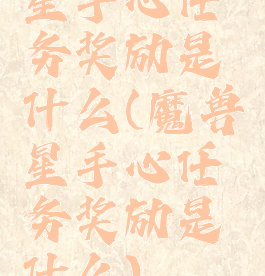 星手心任
务奖励是
什么(魔兽
星手心任
务奖励是
什么)